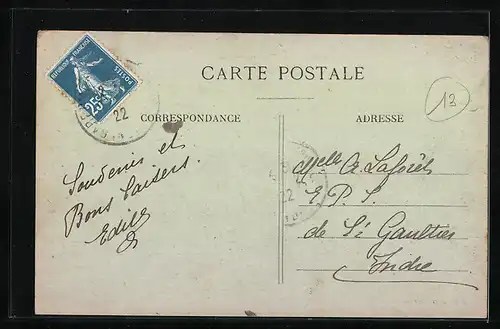 REPUBLIQUE FRANÇAISE
POSTES
25c
22
CARTE POSTALE
13
CORRESPONDANCE
ADRESSE
Souvenir et
Bons baisers.
Mlle A. Laforêt
E. P. S.
de St Gaultier
Indre
22